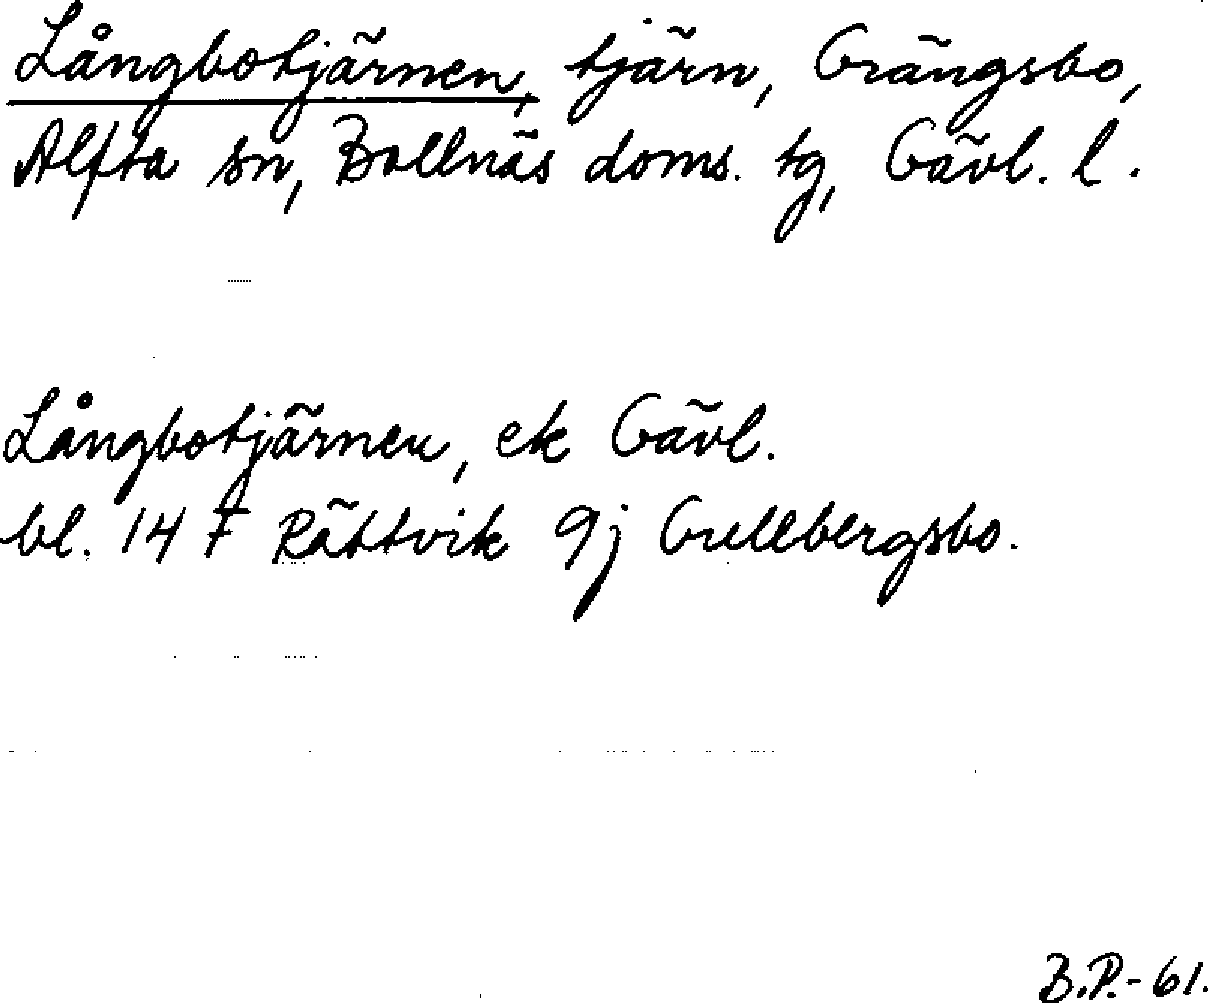 Långbotjärnen, tjärn, Grängsbo,
Alfta sn, Bollnäs doms. tg, Gävl. l.
Långbotjärnen, ek Gävl.
bl. 14 F Rättvik 9j Gullbergsbo.
B.P.-61.